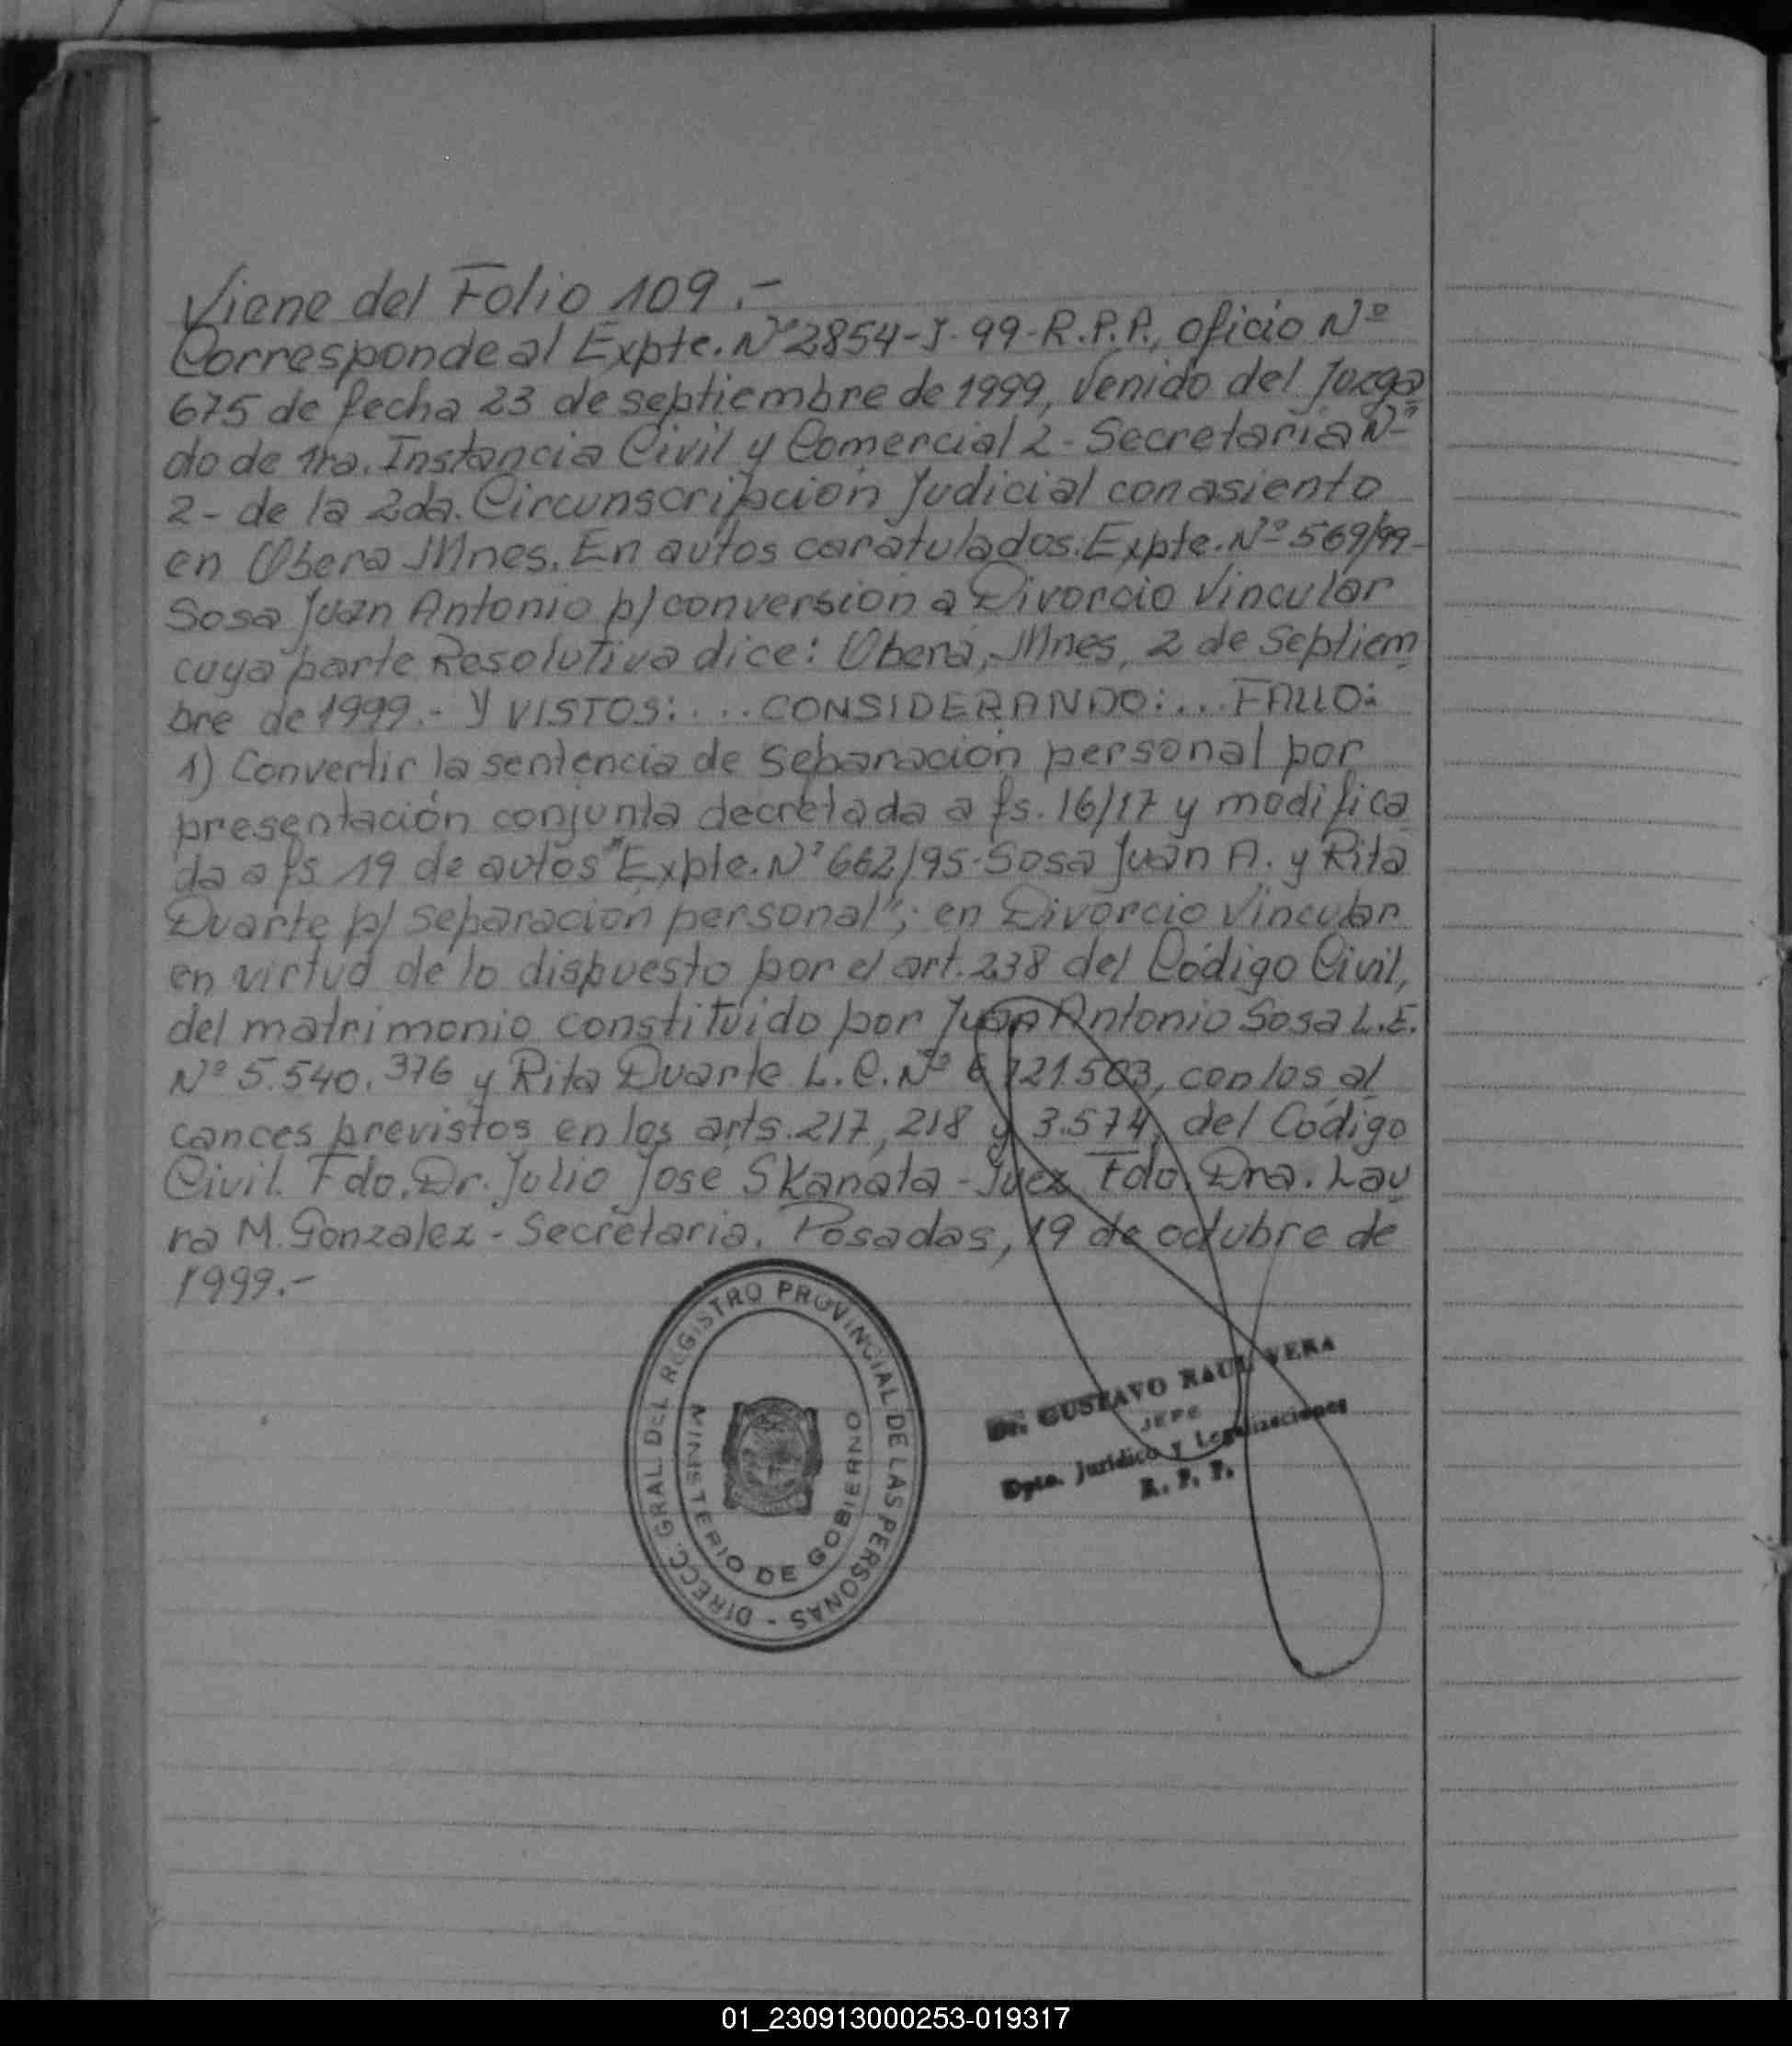 Viene del Folio 109.-
Corresponde al Expte. Nº 2854-J-99-R.P.P., oficio Nº
675 de fecha 23 de septiembre de 1999, venido del Juzga
do de 1ra. Instancia Civil y Comercial 2 - Secretaria Nº
2 - de la 2da. Circunscripción Judicial con asiento
en Obera Mnes. En autos caratulados. Expte. Nº 569/99-
Sosa Juan Antonio p/ conversión a Divorcio Vincular
cuya parte Resolutiva dice: Oberá, Mnes, 2 de Septiem
bre de 1999.- Y VISTOS: ... CONSIDERANDO: ... FALLO:
1) Convertir la sentencia de separación personal por
presentación conjunta decretada a fs. 16/17 y modifica
da a fs 19 de autos "Expte. Nº 662/95-Sosa Juan A. y Rita
Duarte p/ separación personal"; en Divorcio Vincular
en virtud de lo dispuesto por el art. 238 del Código Civil,
del matrimonio constituido por Juan Antonio Sosa L.E.
Nº 5.540.376 y Rita Duarte L.C. Nº 503, con los al
cances previstos en los arts. 217, 218 y 3.574, del Código
Civil. Fdo. Dr. Julio Jose Skanata - Juez Fdo. Dra. Lau
ra M. Gonzalez - Secretaria. Posadas, 19 de octubre de
1999.-
DIRECC. GRAL DEL REGISTRO PROVINCIAL DE LAS PERSONAS -
MINISTERIO DE GOBIERNO
Dr. GUSTAVO RAUL VERA
JEFE
Dpto. Jurídico y Legalizaciones
R. P. P.
01_230913000253-019317